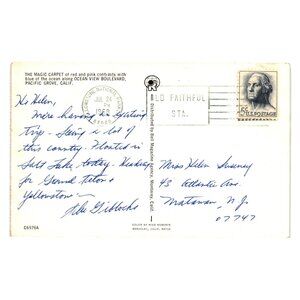 THE MAGIC CARPET of red and pink contrasts with
blue of the ocean along OCEAN VIEW BOULEVARD,
PACIFIC GROVE, CALIF.
Hi Helen,
Were having an exciting
trip – Seing a lot of
this country. Floated in
Salt Lake today. Heading
for Grand Tetons &
Yellowstone –
The Giblocks
C6976A
JUL 24
PM
1968
OLD FAITHFUL
STA.
5¢ U.S. POSTAGE
Miss Helen Sweeney
43 Atlantic Ave.
Matawan, N.J.
07747
Distributed by Bell Magazine Agency, Monterey, Calif.
COLOR BY MIKE ROBERTS
BERKELEY, CALIF. 94710